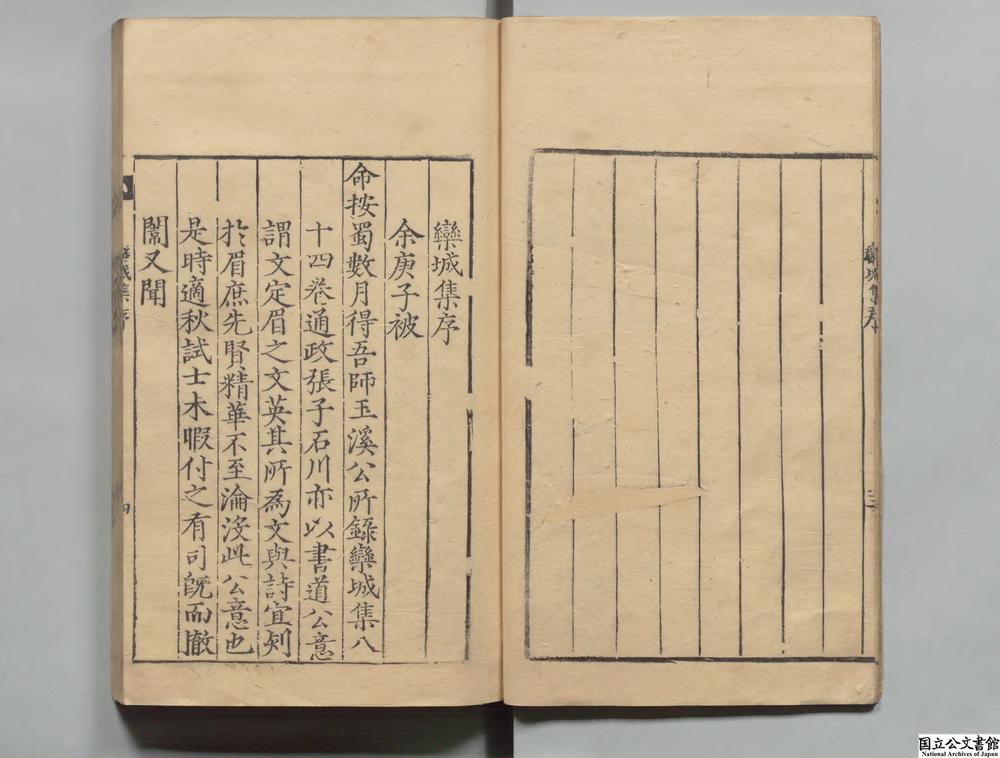 欒城集序
余庚子被
命按蜀數月得吾師玉溪公所錄欒城集八
十四卷通政張子石川亦以書道公意
謂文定眉之文英其所爲文與詩宜刻
於眉庶先賢精華不至淪沒此公意也
是時適秋試士未暇付之有司旣而徹
闈又聞
國立公文書館
National Archives of Japan